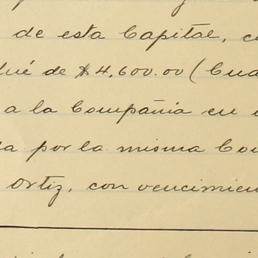 de esta Capital, c
de $4,600.00 (Cua
a la Compañia en
por la misma Co
Ortiz, con vencimien